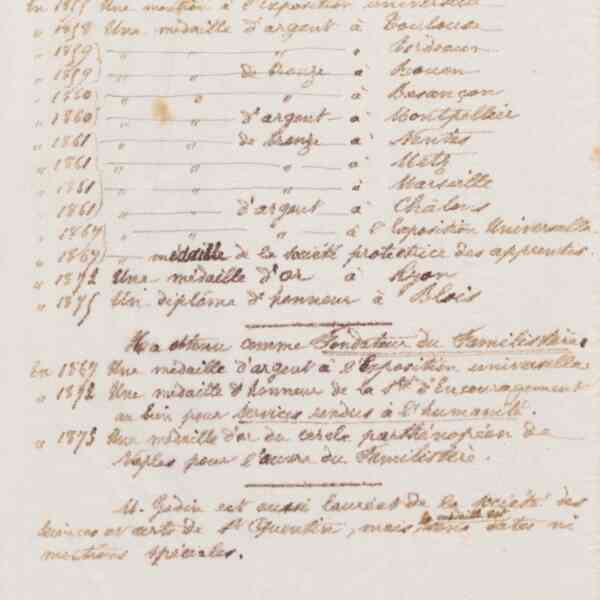 En 1855 Une mention à l'Exposition universelle
" 1858 Une médaille d'argent à Toulouse
" 1859 " " " à Bordeaux
" 1859 " " de bronze à Rouen
" 1860 " " " à Besançon
" 1860 " " d'argent à Montpellier
" 1861 " " de bronze à Nantes
" 1861 " " " à Metz
" 1861 " " " à Marseille
" 1861 " " d'argent à Châlons
" 1867 " " " à l'Exposition Universelle
" 1867 " médaille de la société protectrice des apprentis.
" 1872 Une médaille d'or à Lyon
" 1875 Un diplôme d'honneur à Blois
Il a obtenu comme Fondateur du Familistère.
En 1867 Une médaille d'argent à l'Exposition universelle
" 1872 Une médaille d'honneur de la Sté d'Encouragement
au bien pour services rendus à l'humanité.
" 1873 Une médaille d'or du cercle parthénopéen de
Naples pour l'œuvre du Familistère.
M. Godin est aussi lauréat de la société des
sciences et arts de St Quentin, mais sans dates ni
mentions spéciales.